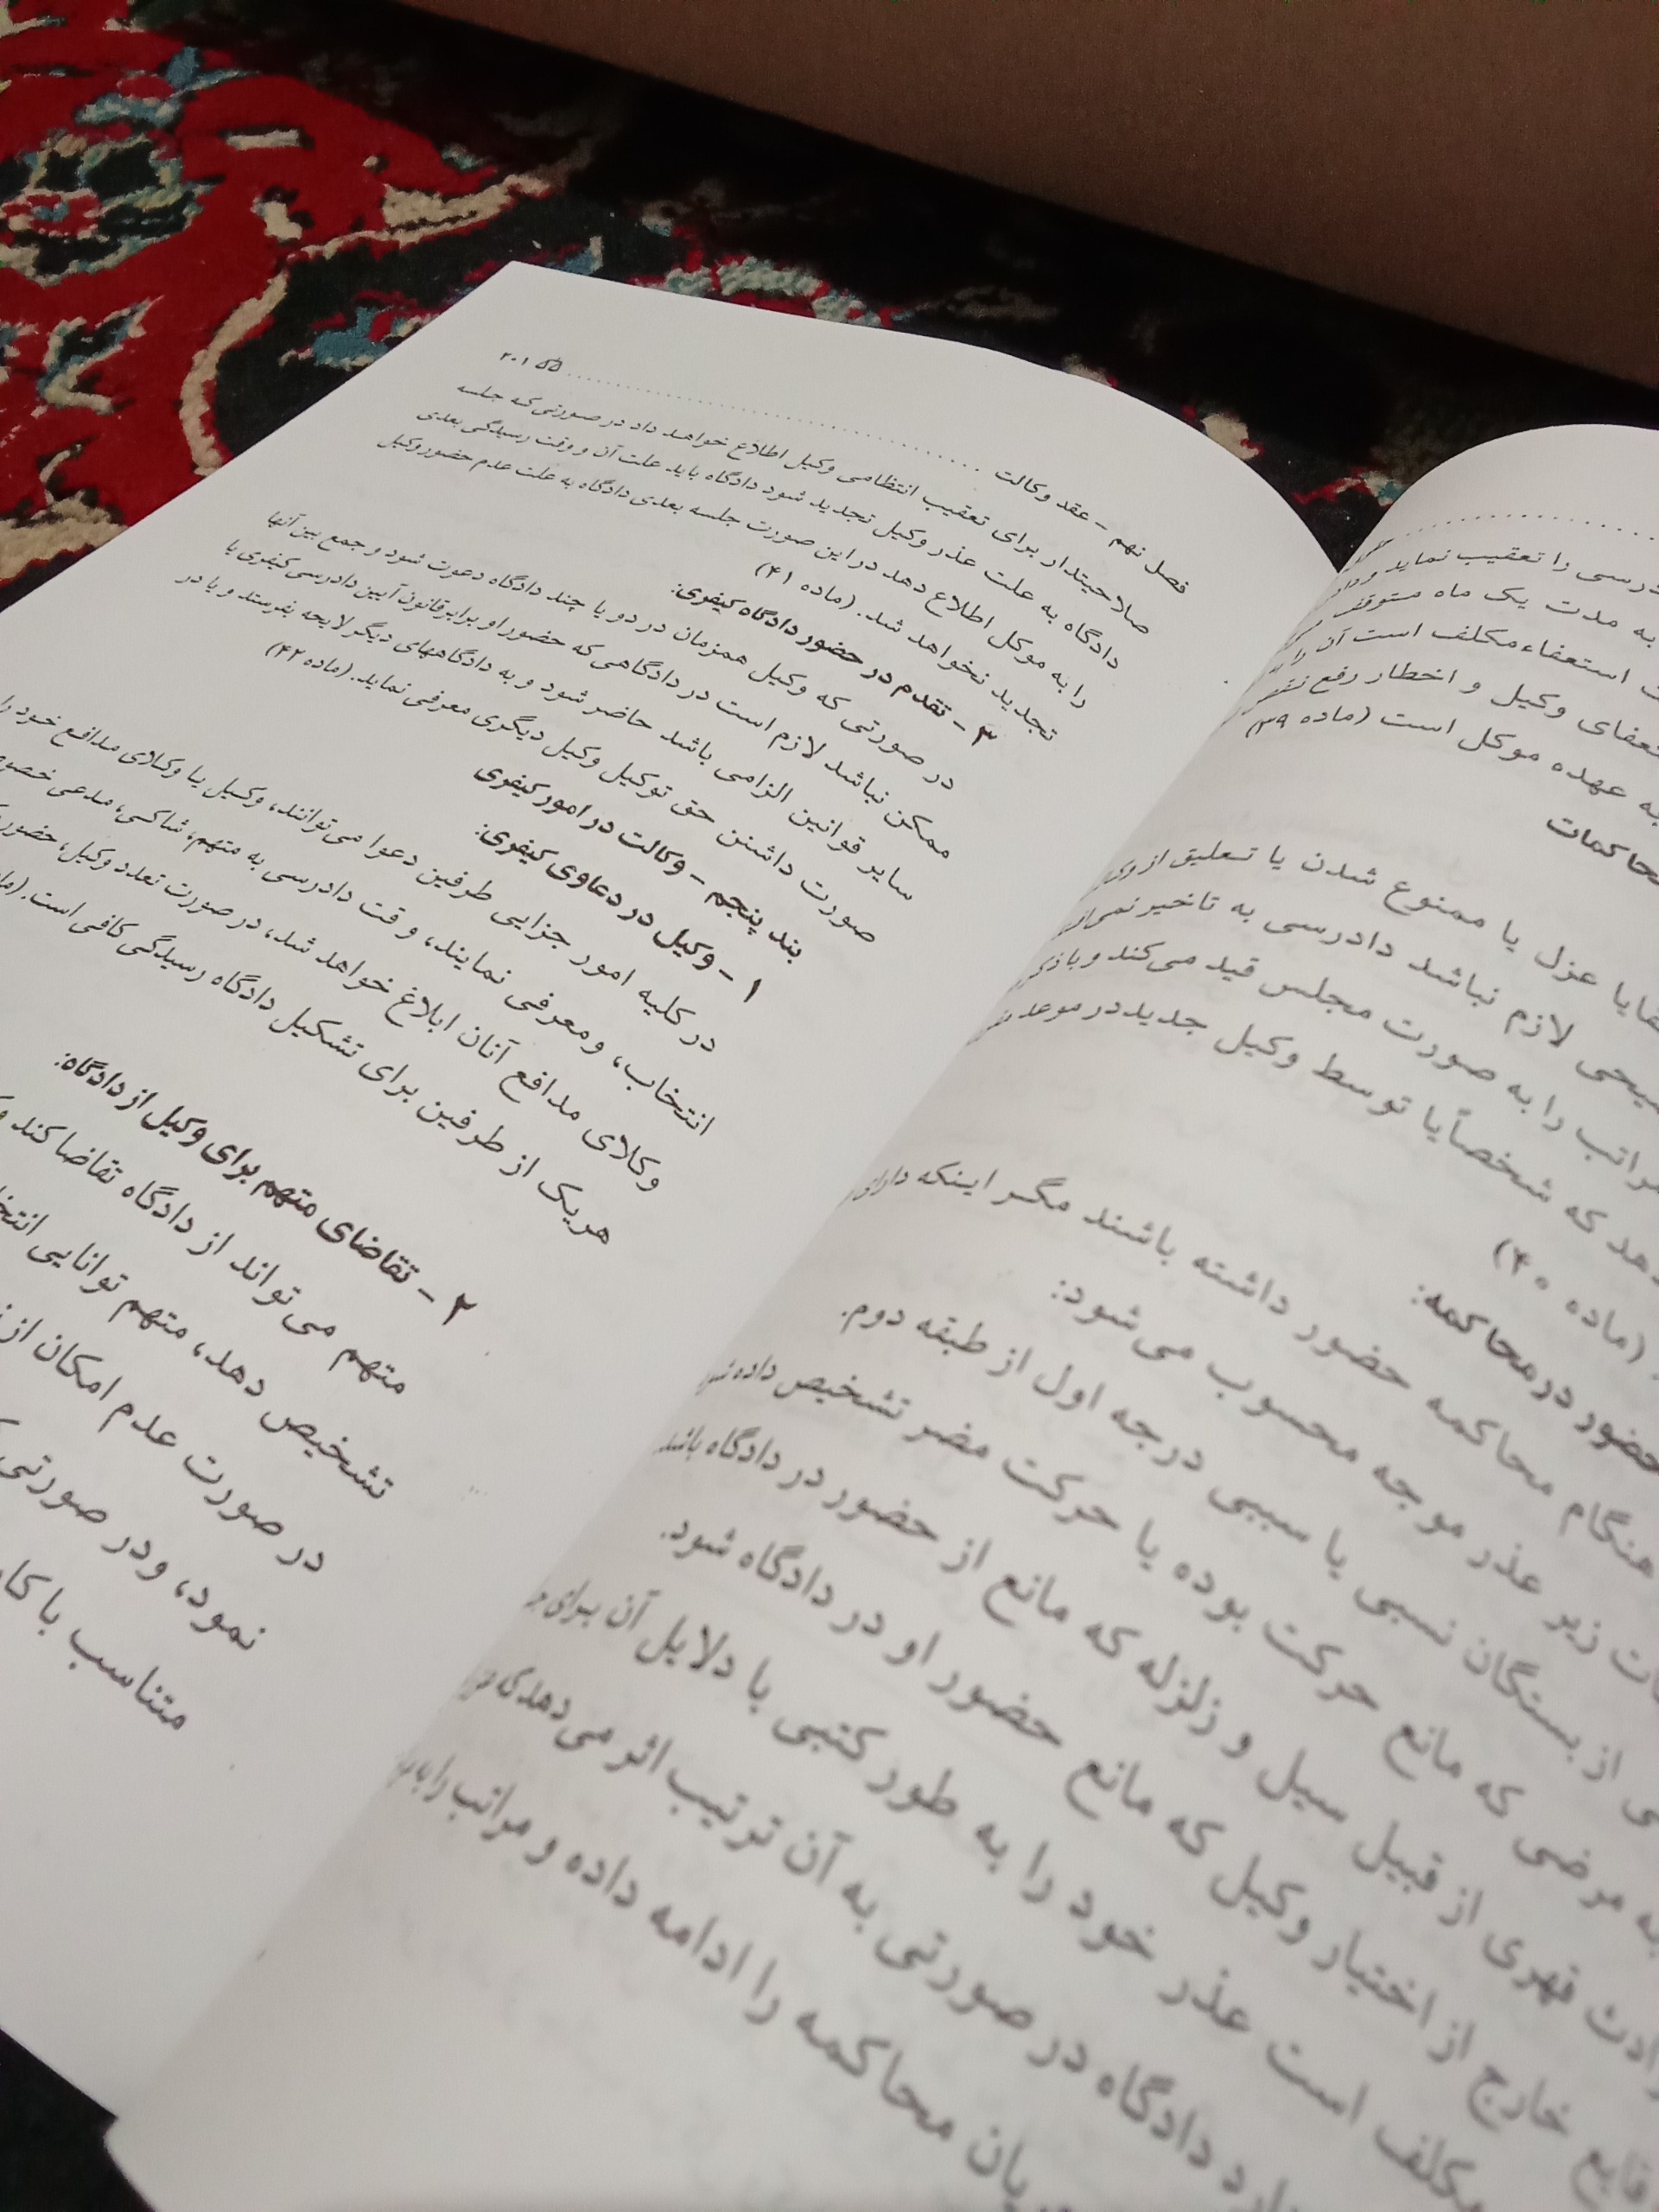 درسی را تعقیب نماید و
به مدت یک ماه متوقف
استعفاء مکلف است آن را به
وکیل و اخطار رفع نقص
به عهده موکل است (ماده ۳۹)
عزل یا ممنوع شدن یا تعلیق از
لازم نباشد دادرسی به تاخیر
را به صورت مجلس قید می‌کند و با ذکر
که شخصاً یا توسط وکیل جدید در موعد
(ماده ۴۰)
حضور در محاکمه:
هنگام محاکمه حضور داشته باشند مگر اینکه دارای
زیر عذر موجه محسوب می‌شود:
از بستگان نسبی یا سببی درجه اول از طبقه دوم.
مرضی که مانع حرکت بوده یا حرکت مضر تشخیص داده شود
قهری از قبیل سیل و زلزله که مانع از حضور در دادگاه باشد.
خارج از اختیار وکیل که مانع حضور او در دادگاه شود.
مکلف است عذر خود را به طور کتبی با دلایل آن برای
دادگاه در صورتی به آن ترتیب اثر می‌دهد که
محاکمه را ادامه داده و مراتب را به
فصل نهم - عقد وکالت ........................................ ۲۰۱
صلاحیتدار برای تعقیب انتظامی وکیل اطلاع خواهد داد در صورتی که جلسه
دادگاه به علت عذر وکیل تجدید شود دادگاه باید علت آن و وقت رسیدگی بعدی
را به موکل اطلاع دهد در این صورت جلسه بعدی دادگاه به علت عدم حضور وکیل
تجدید نخواهد شد. (ماده ۴۱)
۳ - تقدم در حضور دادگاه کیفری:
در صورتی که وکیل همزمان در دو یا چند دادگاه دعوت شود و جمع بین آنها
ممکن نباشد لازم است در دادگاهی که حضور او برابر قانون آیین دادرسی کیفری یا
سایر قوانین الزامی باشد حاضر شود و به دادگاههای دیگر لایحه بفرستد و یا در
صورت داشتن حق توکیل وکیل دیگری معرفی نماید. (ماده ۴۲)
بند پنجم - وکالت در امور کیفری
۱ - وکیل در دعاوی کیفری:
در کلیه امور جزایی طرفین دعوا می‌توانند، وکیل یا وکلای مدافع خود را
انتخاب، و معرفی نمایند، وقت دادرسی به متهم، شاکی، مدعی
وکلای مدافع آنان ابلاغ خواهد شد، در صورت تعدد وکیل، حضور
هریک از طرفین برای تشکیل دادگاه رسیدگی کافی است.
۲ - تقاضای متهم برای وکیل از دادگاه:
متهم می‌تواند از دادگاه تقاضا کند
تشخیص دهد، متهم توانایی
در صورت عدم امکان از
نمود، ودر صورتی
متناسب با